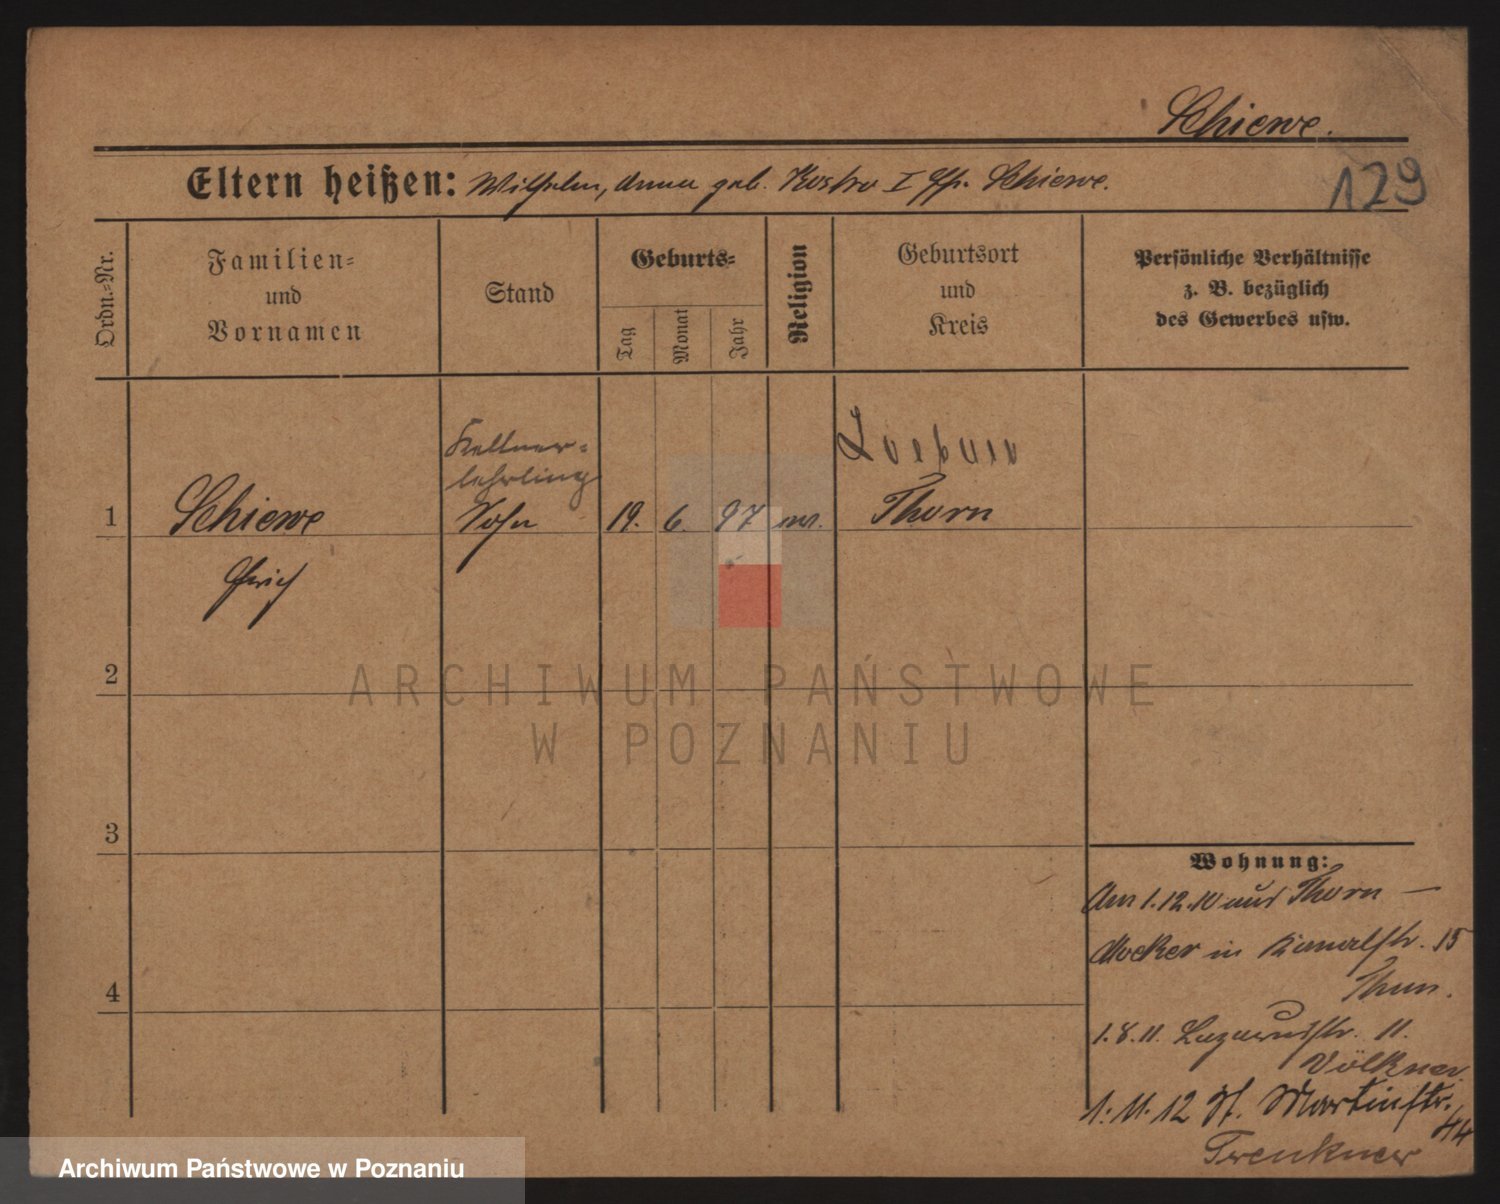 Schiewe.
129
Eltern heißen: Wilhelm, Anna geb. Kostro I Ehe. Schiewe.
Ordn.-Nr.
Familien-
und
Vornamen
Stand
Geburts-
Tag
Monat
Jahr
Religion
Geburtsort
und
Kreis
Persönliche Verhältnisse
z. B. bezüglich
des Gewerbes usw.
Kellner-
lehrling
1 Schiewe Sohn 19. 6. 97 Thorn
Erich
2
3
4
Wohnung:
Am 1.12.10 aus Thorn —
Mocker in Kanalstr. 15
1.8.11. Lazarusstr. 11.
Völkner
1.11.12 St. Martinstr. 44
Trenkner
ARCHIWUM PAŃSTWOWE
W POZNANIU
Archiwum Państwowe w Poznaniu